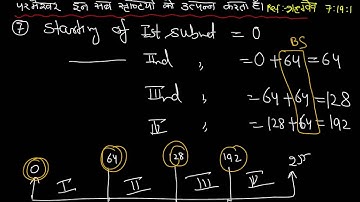 परमेश्वर इन सब सृष्टियों को उत्पन्न करता है। 7:19:1
⑦ Starting of Ist subnet = 0
BS
IInd " = 0 + 64 = 64
IIIrd " = 64 + 64 = 128
IV " = 128 + 64 = 192
0 64 128 192 255
I II III IV